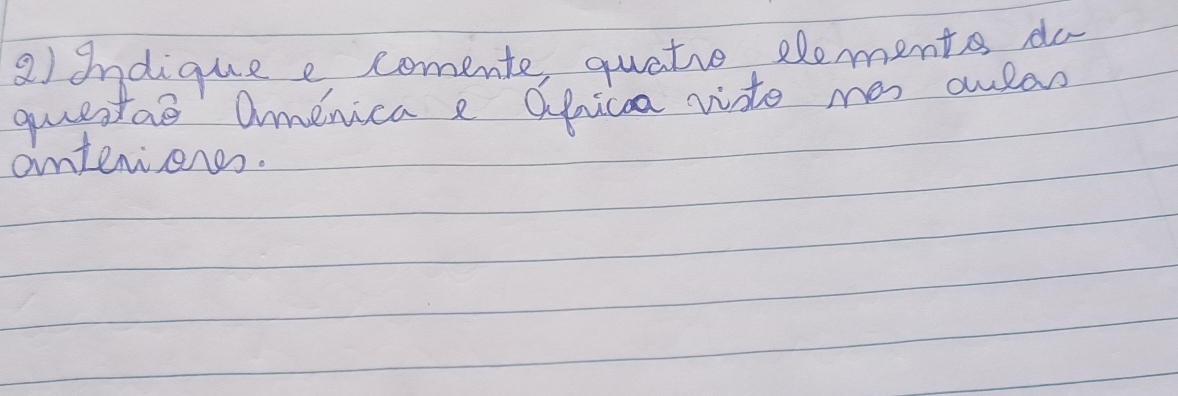 2) Indique e comente, quatro elementos da
questão América e África visto nas aulas
anteriores.